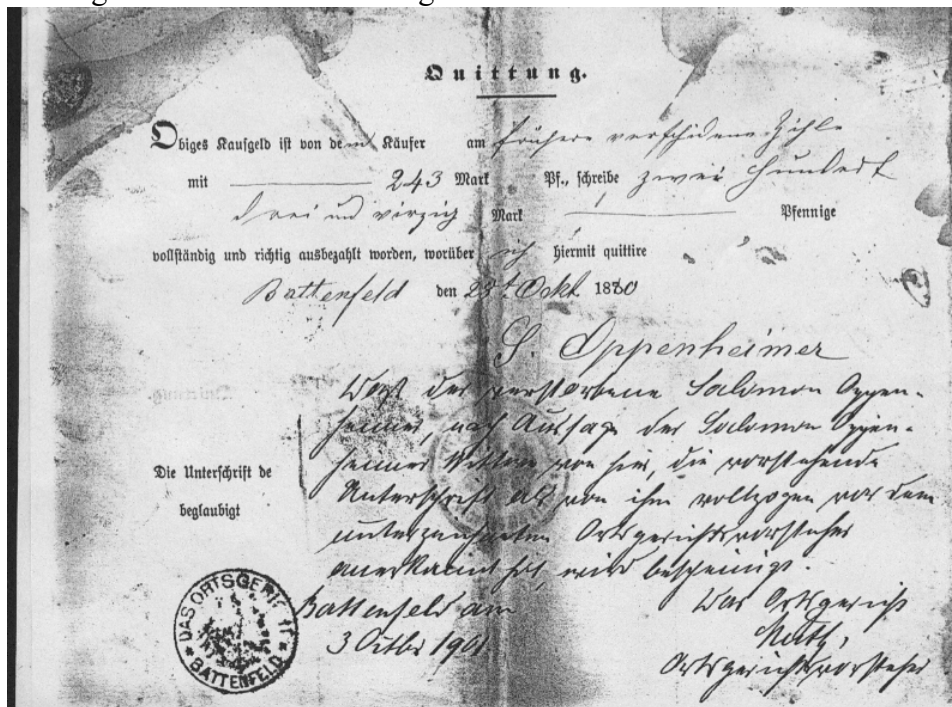 Quittung.
Obiges Kaufgeld ist von dem Käufer am frühere verschidene Zihle
mit 243 Mark Pf., schreibe zwei Hundert
drei und virzig Mark Pfennige
vollständig und richtig ausbezahlt worden, worüber ich hiermit quittire
Battenfeld den 23t Ockt 1880
S. Oppenheimer
der verstorbene Salomon Oppen-
heimer, nach Aussage der Salomon Oppen-
heimer Wittwe von hier, die vorstehende
Die Unterschrift de
Unterschrift als von ihm vollzogen vor dem
beglaubigt
unterzeichneten Ortsgerichtsvorsteher
anerkannt hat, wird bescheinigt.
Battenfeld am
Das Ortsgericht
3 Octbr 1901
Ortsgerichtsvorsteher
DAS ORTSGERICHT
BATTENFELD